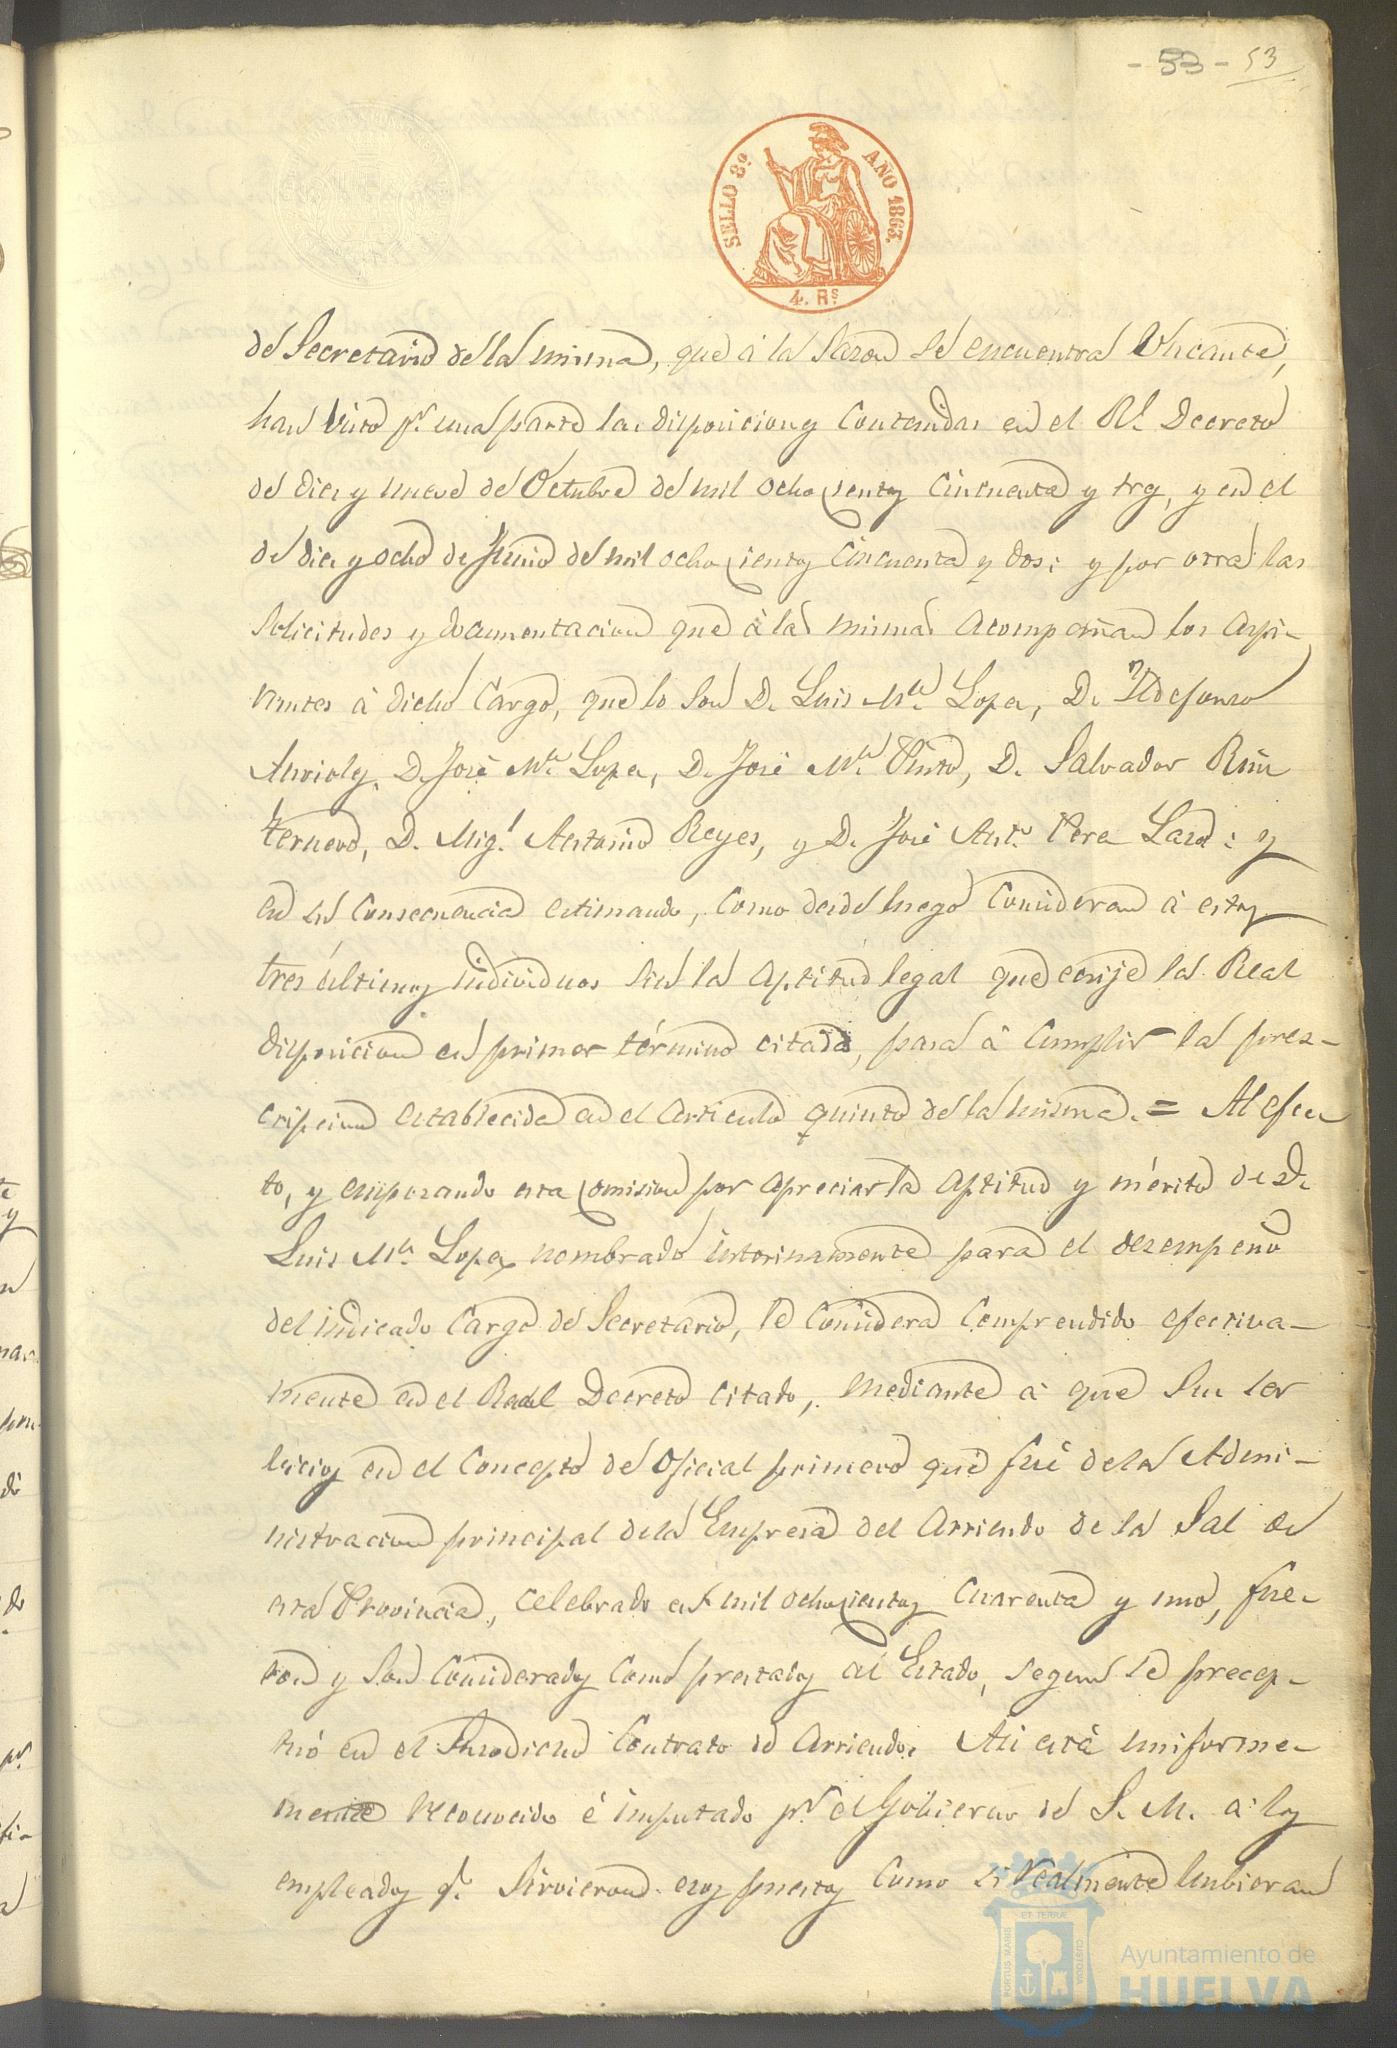 - 53 - 53
SELLO 8º AÑO 1863.
4. Rs
de Secretario de la misma, que á la sazon se encuentra Vacante,
han visto pr. una parte las disposiciones contenidas en el Rl. Decreto
de diez y nueve de Octubre de mil ochocientos cincuenta y tres, y en el
de diez y ocho de Junio de mil ochocientos cincuenta y dos; y por otra las
solicitudes y documentacion que á las mismas acompañan los aspi-
rantes á dicho Cargo, que lo son D. Luis Mª Lopez, D. Ildefonso
D. José Mª Lopez, D. José Mª Pinto, D. Salvador
D. Migl. Antonio Reyes, y D. José Antº Vera Lazo: y
en su consecuencia estimando, como desde luego consideran á estos
tres últimos individuos sin la aptitud legal que exije la Real
disposicion en primer término citada, pasa á cumplir la pres-
cripcion establecida en el articulo quinto de la misma. = Al efec-
to, y empezando esta Comision por apreciar la aptitud y mérito de D.
Luis Mª Lopez nombrado interinamente para el desempeño
del indicado Cargo de Secretario, le considera comprendido efectiva-
mente en el Real Decreto citado, mediante á que sus ser
vicios en el concepto de Oficial primero que fué de la Admi-
nistracion principal de la Empresa del Arriendo de la Sal de
esta Provincia, celebrado en mil ochocientos cuarenta y uno, fue-
ron y son considerados como prestados al Estado, segun se precep-
tuó en el susodicho Contrato de Arriendo. Asi está uniforme-
mente reconocido é imputado pr. el Gobierno de S. M. á los
empleados q. sirvieron esos puestos como si realmente hubieran
PORTUS MARIS ET TERRÆ CUSTODIA
Ayuntamiento de
HUELVA